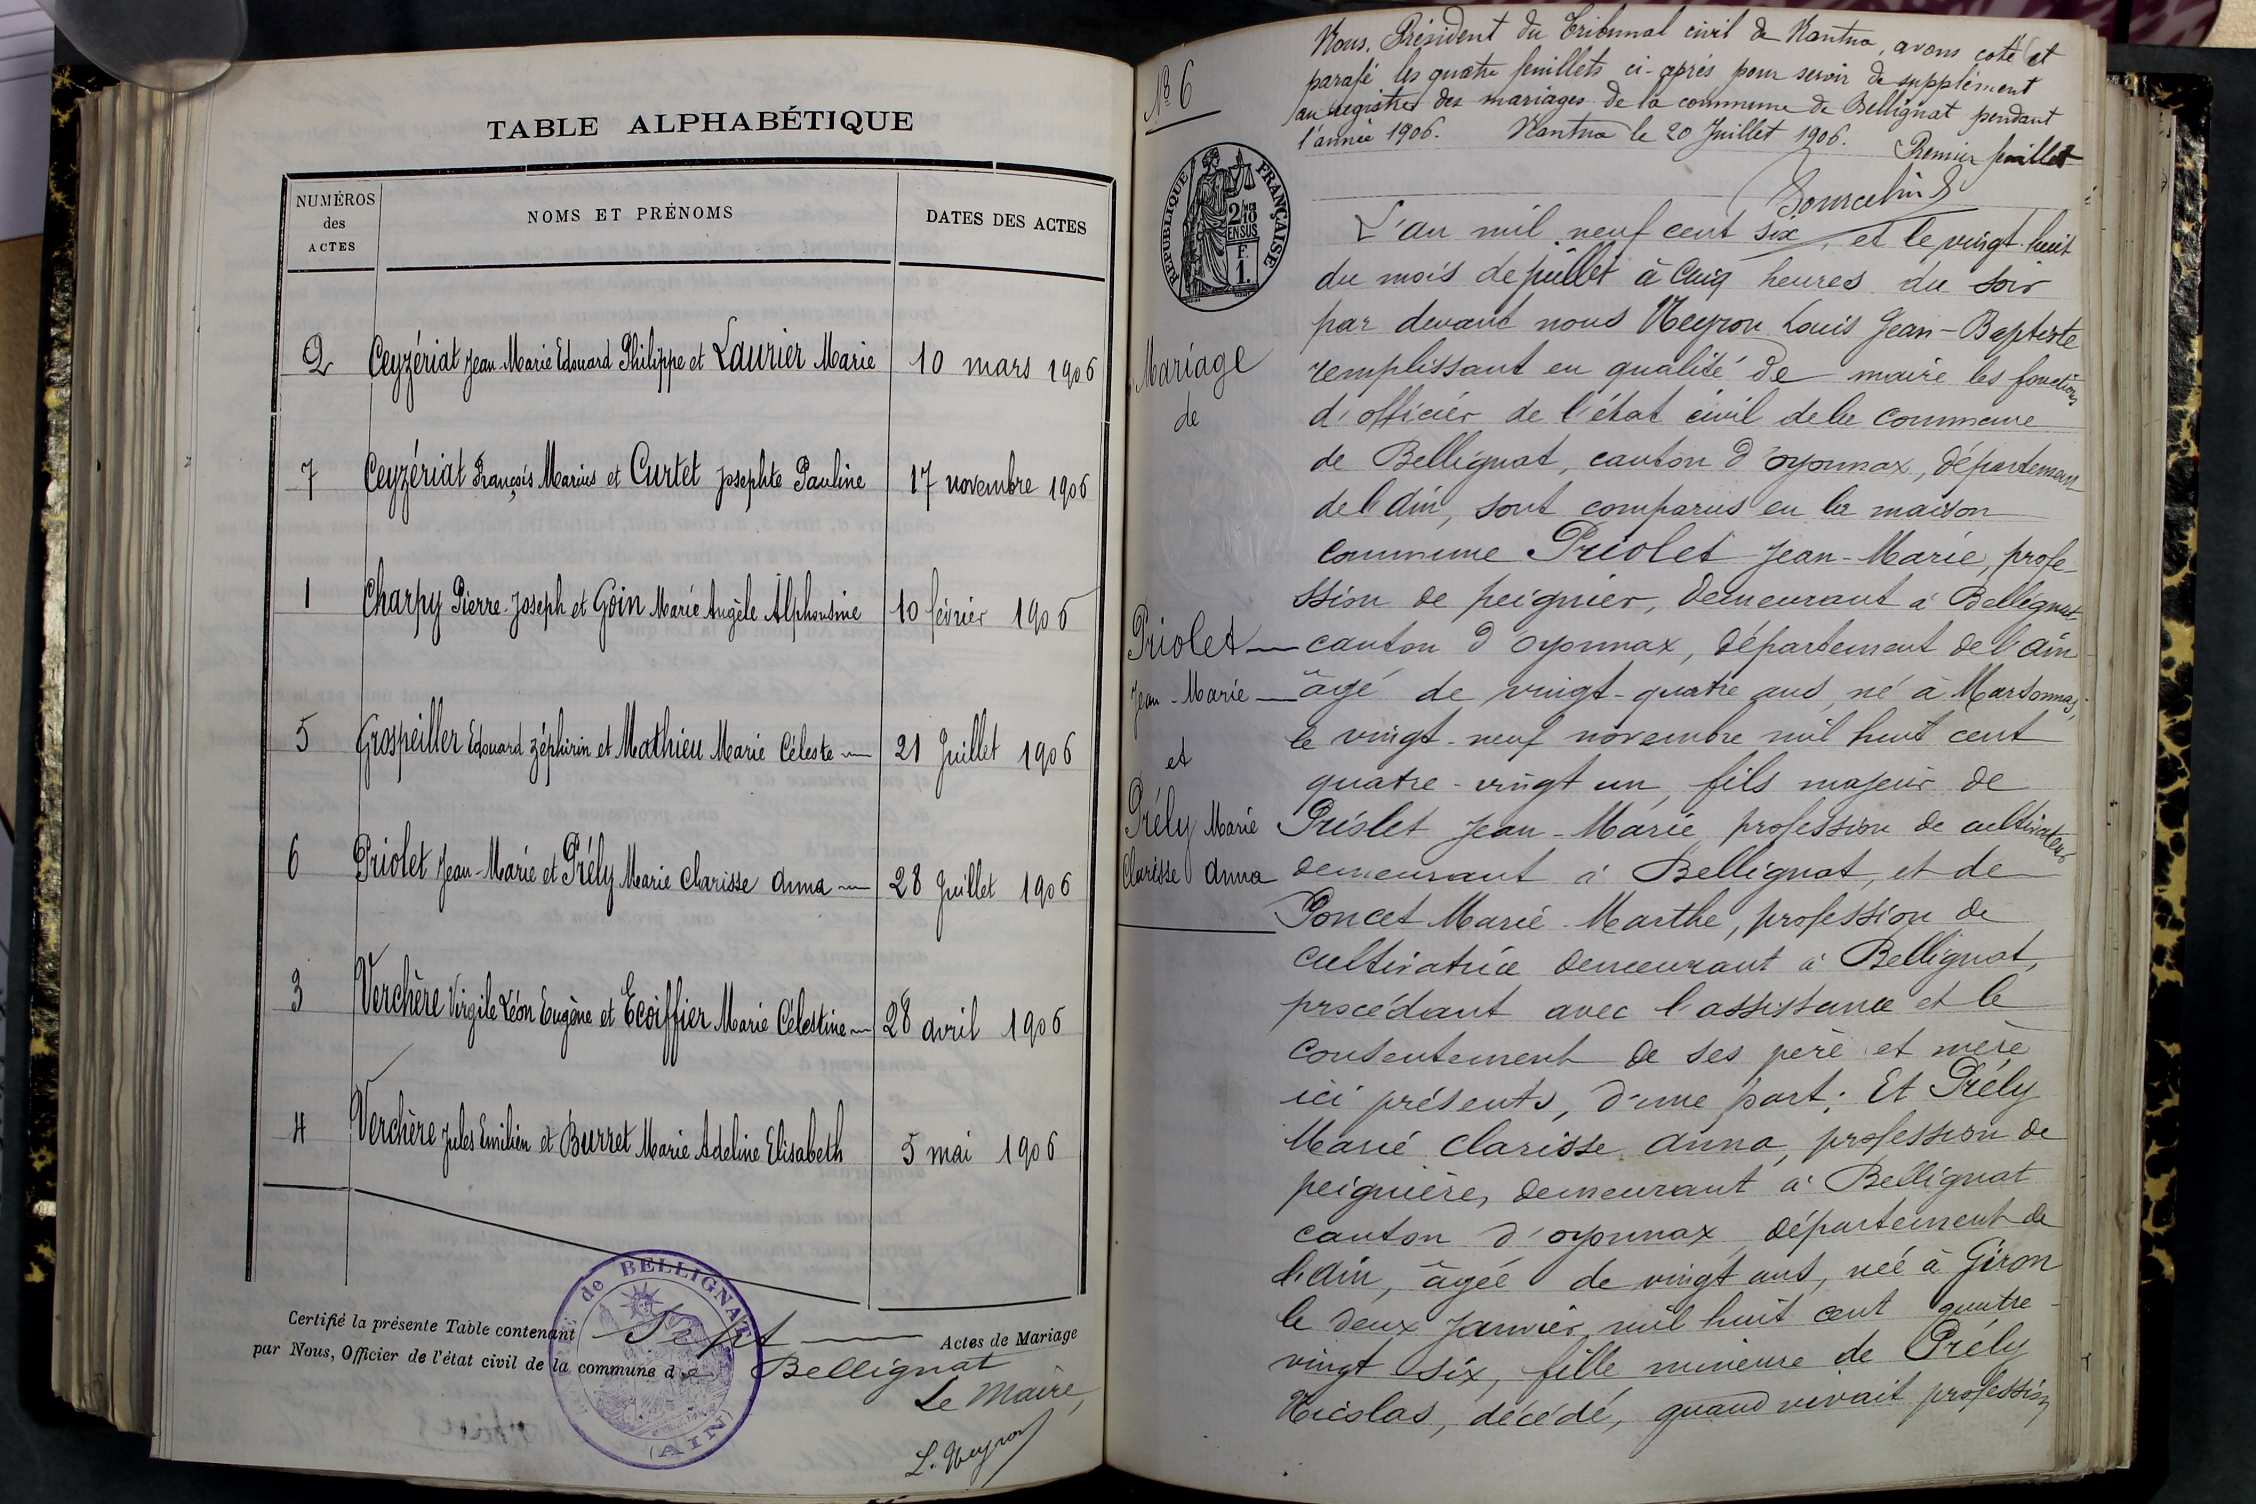 TABLE ALPHABÉTIQUE
NUMÉROS des ACTES
NOMS ET PRÉNOMS
DATES DES ACTES
2 Ceyzériat Jean-Marie Edouard Philippe et Laurier Marie 10 mars 1906
7 Ceyzériat François Marius et Curtet Josephte Pauline 17 novembre 1906
1 Charpy Pierre-Joseph et Goin Marie Angèle Alphonsine 10 février 1906
5 Grospeiller Edouard Zéphirin et Mathieu Marie Céleste 21 Juillet 1906
6 Priolet Jean-Marie et Prély Marie Clarisse Anna 28 Juillet 1906
3 Verchère Virgile Léon Eugène et Ecoiffier Marie Célestine 28 avril 1906
4 Verchère Jules Emilien et Burret Marie Adeline Elisabeth 5 mai 1906
Certifié la présente Table contenant Sept Actes de Mariage
par Nous, Officier de l'état civil de la commune de Bellignat
Le Maire,
L. Neyron
de BELLIGNAT
(AIN)
Nº 6
Nous, Président du Tribunal civil de Nantua, avons coté et
parafé les quatre feuillets ci-après pour servir de supplément
au registre des mariages de la commune de Bellignat pendant
l'année 1906. Nantua le 20 Juillet 1906. Premier feuillet
RÉPUBLIQUE FRANÇAISE
2/10
EN SUS
F.
1.
Mariage
de
Priolet
Jean-Marie
et
Prély Marie
Clarisse Anna
L'an mil neuf cent six, et le vingt-huit
du mois de juillet à cinq heures du soir
par devant nous Neyron Louis Jean-Baptiste
remplissant en qualité de maire les fonctions
d'officier de l'état civil de la commune
de Bellignat, canton d'oyonnax, département
de l'Ain, sont comparus en la maison
commune Priolet Jean-Marie, profe-
ssion de peignier, demeurant à Bellignat
canton d'oyonnax, département de l'ain
âgé de vingt-quatre ans, né à Martonnas,
le vingt-neuf novembre mil huit cent
quatre-vingt un, fils majeur de
Priolet Jean-Marie profession de cultivateur
demeurant à Bellignat, et de
Poncet Marie-Marthe, profession de
cultivatrice demeurant à Bellignat,
procédant avec l'assistance et le
consentement de ses père et mère
ici présents, d'une part; Et Prély
Marie Clarisse Anna, profession de
peignière, demeurant à Bellignat
canton d'oyonnax département de
l'Ain, âgée de vingt ans, née à Giron
le deux Janvier mil huit cent quatre-
vingt six, fille mineure de Prély
Nicolas, décédé, quand vivait profession